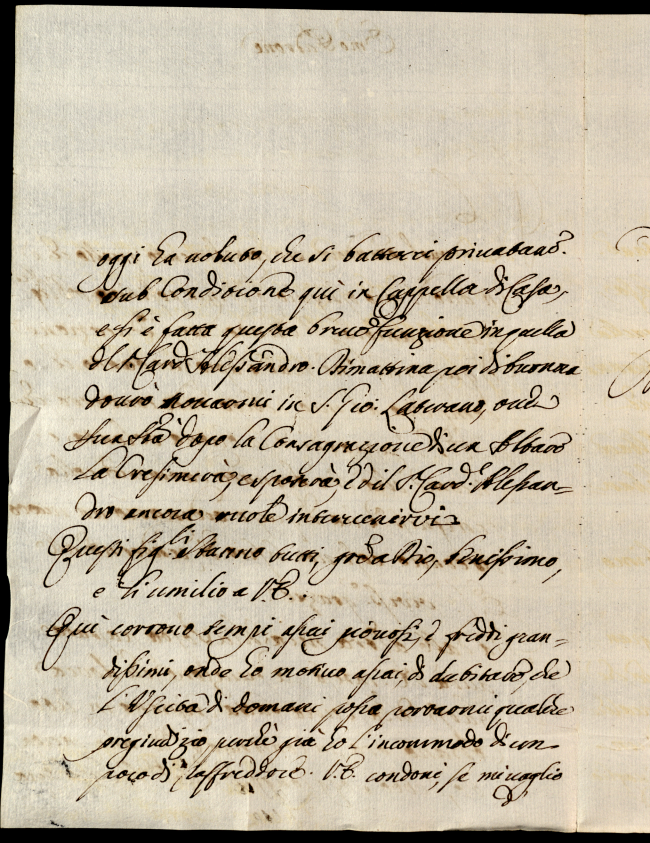 oggi ha voluto, che si battezzi privatam.e
sub Conditione quì in Cappella di Casa,
e si è fatta questa breve funzione in quella
del S.r Card. Alessandro. Dimattina poi di buonna
dovrò trovarmi in S. Gio: Laterano, ove
Sua S.tà dopo la Consagrazione di un Altare
La Cresimerà, e sposerà, ed il S.r Card.l Alessan-
dro ancora vuole intervenirvi
Questi Sig.li stanno tutti, grã a Dio, benissimo,
e li umilio a V.E.
Quì corrono tempi assai piovosi, e freddi gran-
dissimi, onde ho motivo assai di dubitare, che
l'Uscita di domani possa portarmi qualche
pregiudizio, perchè già ho l'incommodo di un
poco di raffreddore. V.E. condoni, se mi vaglio